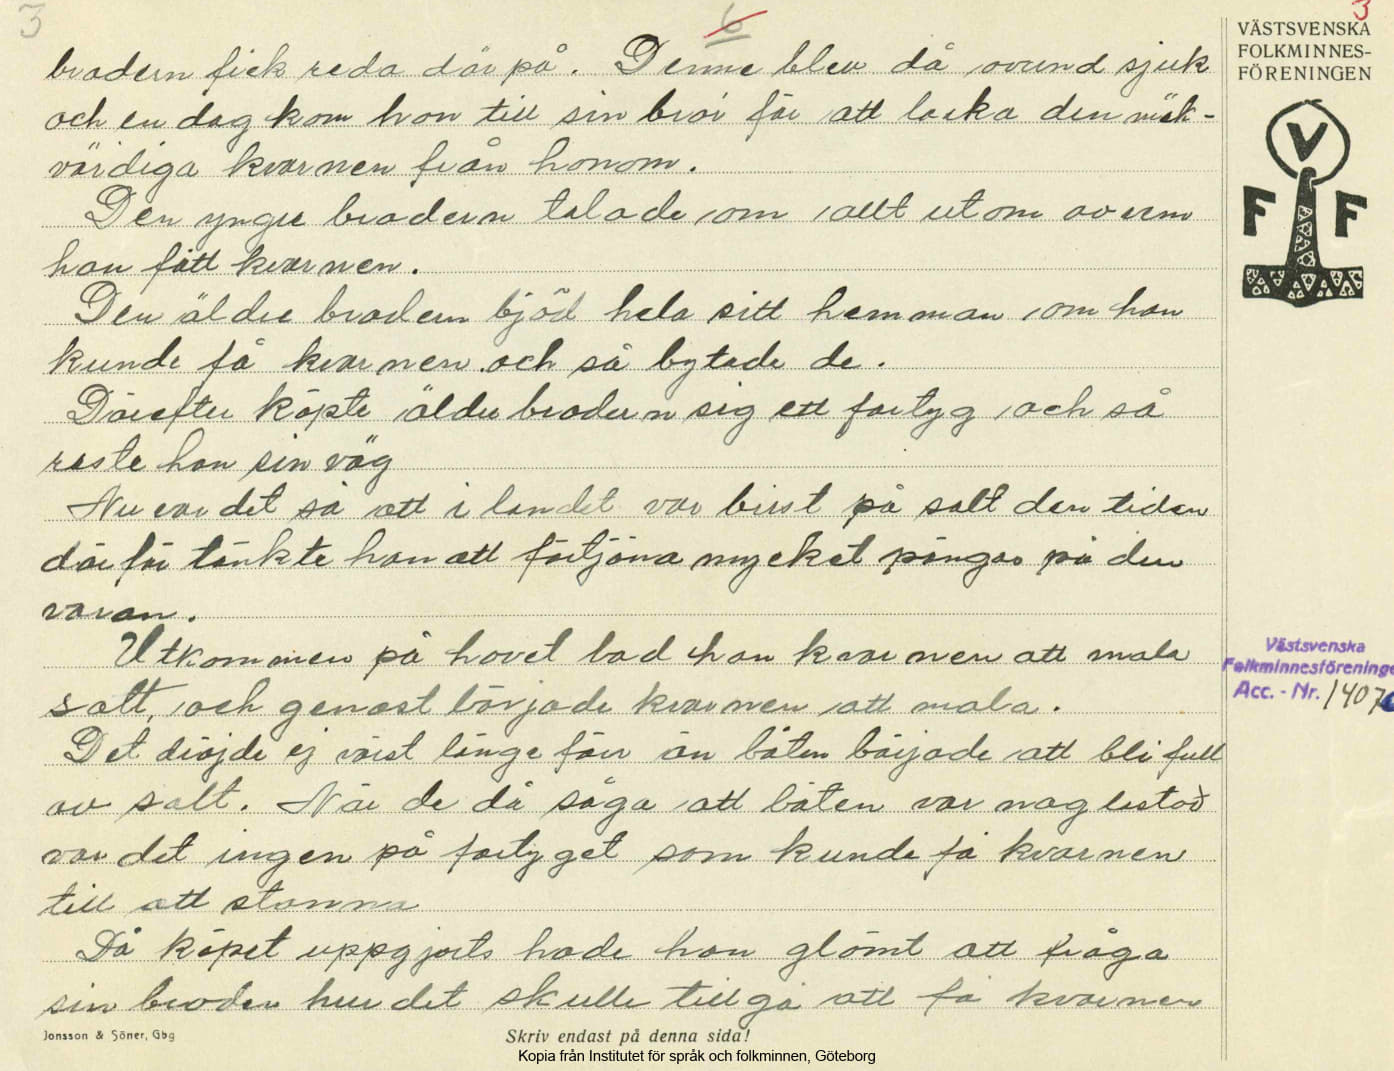 3
6
3
VÄSTSVENSKA
FOLKMINNES-
FÖRENINGEN
V
F F
brodern fick reda där på. Denne blev då avund sjuk
och en dag kom han till sin bror för att locka den märk-
värdiga kvarnen från honom.
Den yngre brodern talade om allt utom av vem
han fått kvarnen.
Den äldre brodern bjöd hela sitt hemman om han
kunde få kvarnen och så bytade de.
Därefter köpte äldre brodern sig ett fartyg och så
reste han sin väg
Nu var det så att i landet var brist på salt den tiden
därför tänkte han att förtjäna mycket pängar på den
varan.
Utkommen på havet bad han kvarnen att mala
salt, och genast började kvarnen att mala.
Det dröjde ej värst länge förr än båten började att bli full
av salt. När de då såga att båten var nog lastad
var det ingen på fartyget som kunde få kvarnen
till att stanna
Då köpet uppgjorts hade han glömt att fråga
sin broder hur det skulle tillgå att få kvarnen
Västsvenska
Folkminnesföreninge
Acc. - Nr. 1407
Jonsson & Söner, Gbg
Skriv endast på denna sida!
Kopia från Institutet för språk och folkminnen, Göteborg